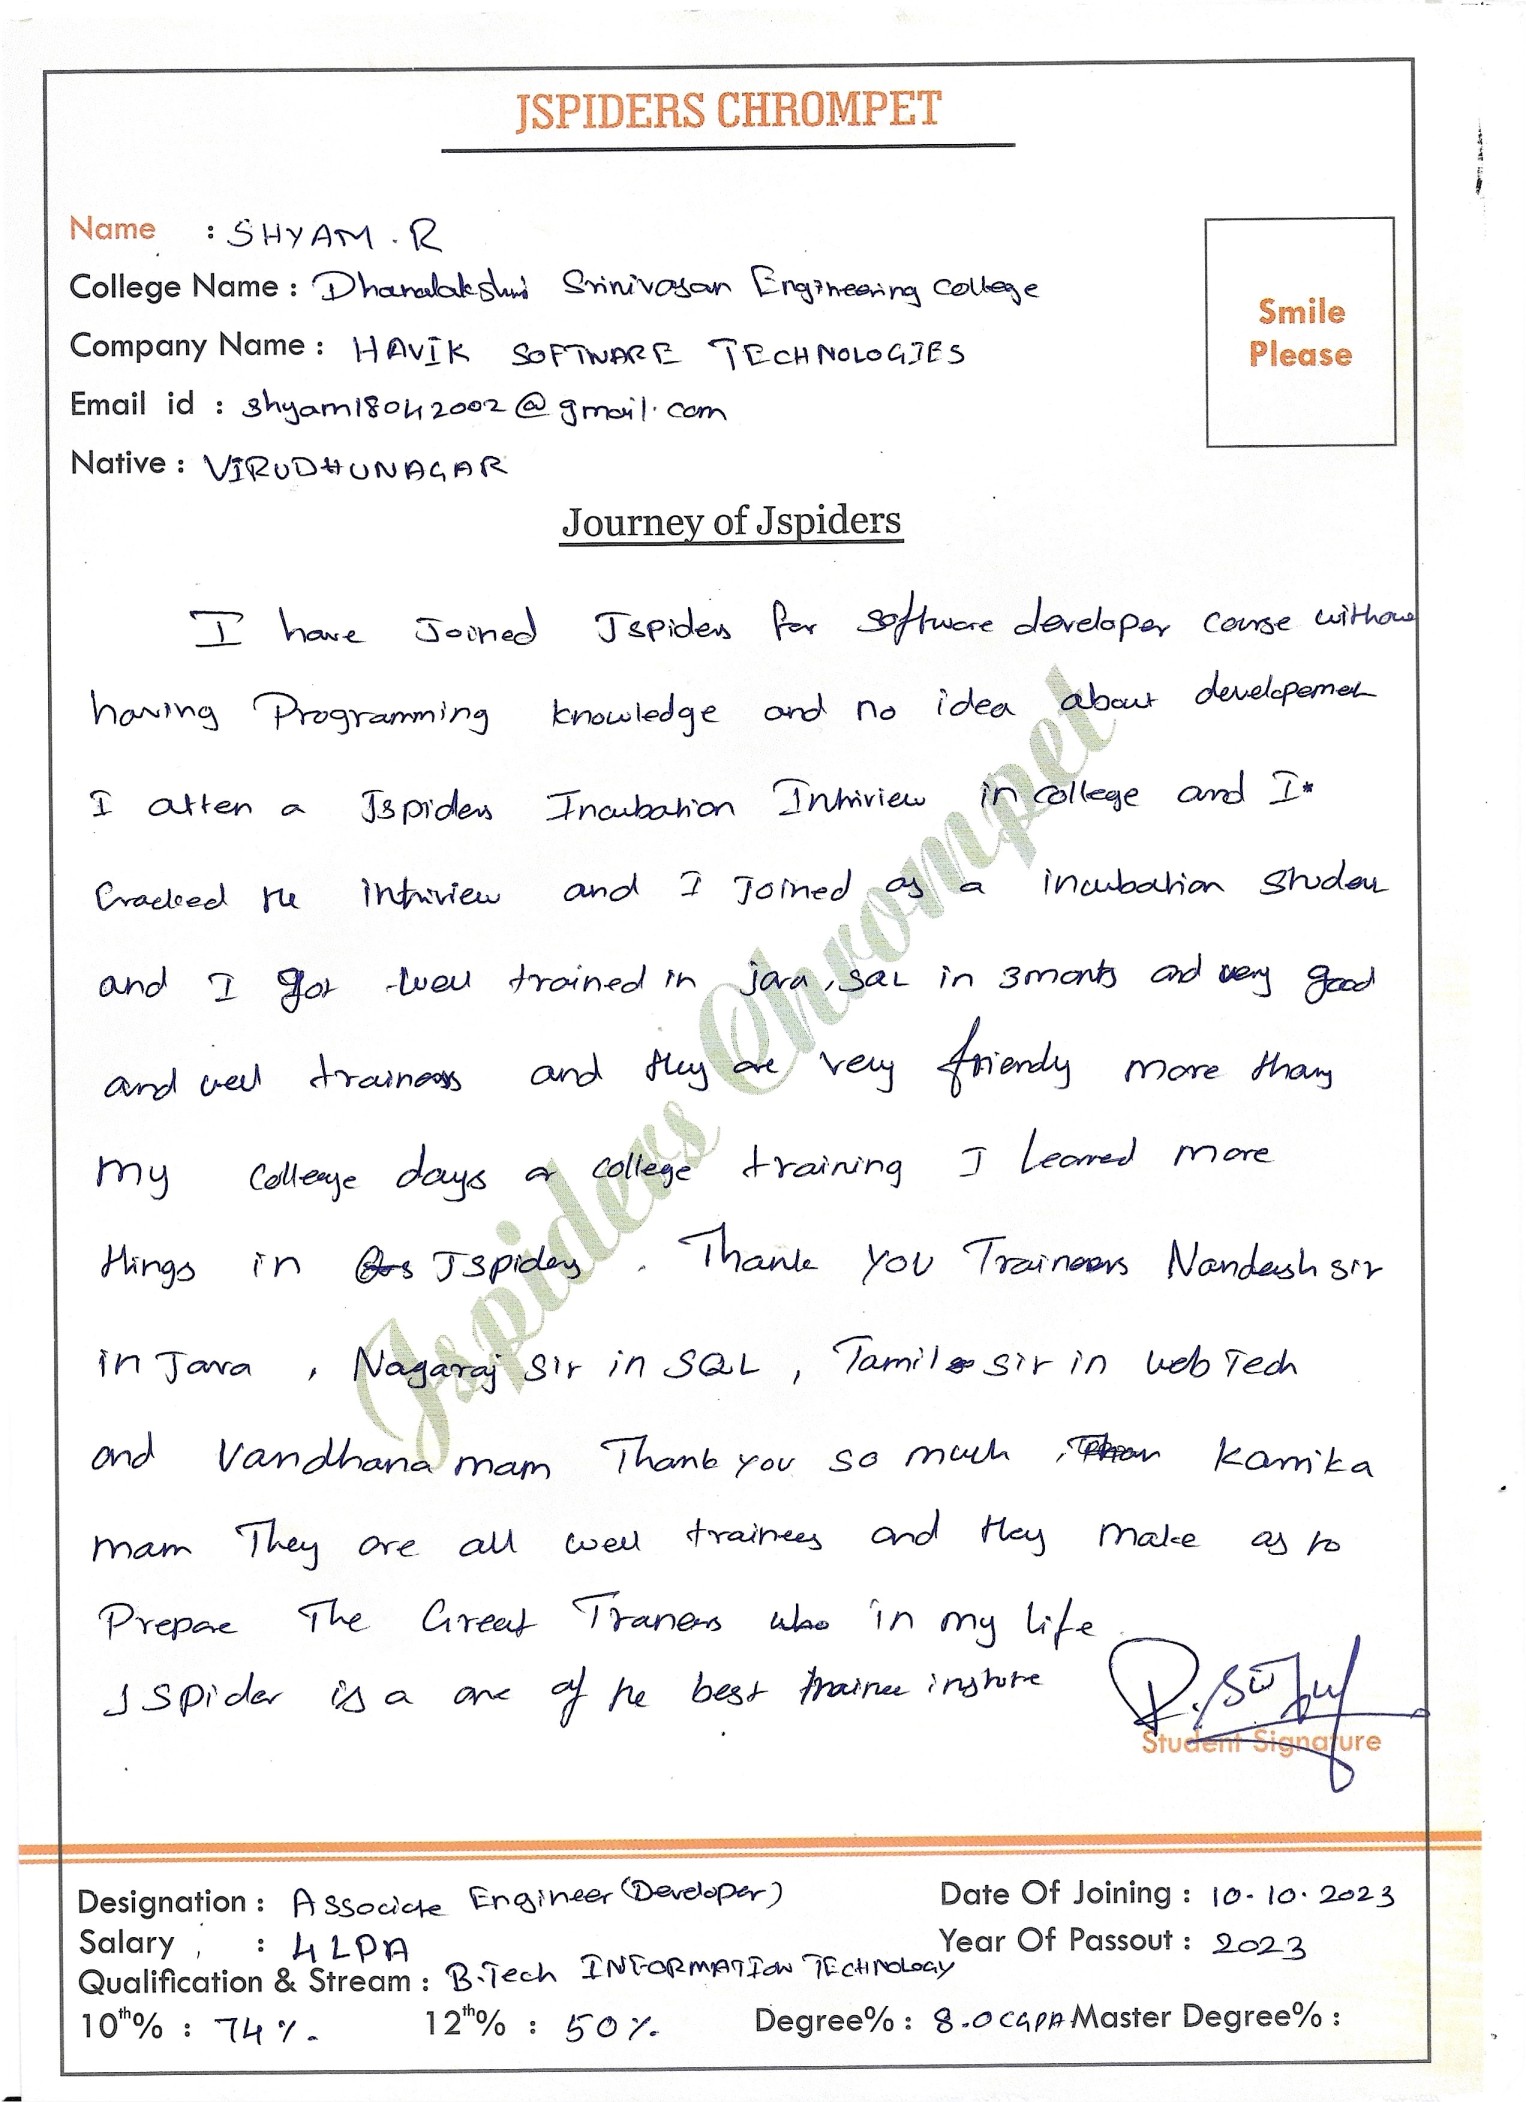 JSPIDERS CHROMPET
Name : SHYAM . R
College Name : Dhanalakshmi Srinivasan Engineering College
Smile
Please
Company Name : HAVIK SOFTWARE TECHNOLOGIES
Email id : shyam18042002@gmail.com
Native : VIRUDHUNAGAR
Journey of Jspiders
I have Joined Jspiders for software developer course withou
having Programming knowledge and no idea about developemet
I atten a Jspiders Incubation Intriview in college and I
Cracked the intriview and I Joined as a incubation student
and I got well trained in java, SQL in 3 months and very good
and well trainers and they are very friendly more than
my College days or college training I Learned more
things in Jspiders . Thank you Trainers Nandesh sir
in Java , Nagaraj Sir in SQL , Tamil sir in web Tech
and Vandhana mam Thank you so much , Kamika
mam They are all well trainees and they make as to
Prepare The Great Traners who in my life
JSpider is a one of the best trainee institute
Student Signature
Jspiders Chrompet
Designation : Associate Engineer (Developer) Date Of Joining : 10-10-2023
Salary : 4 LPA Year Of Passout : 2023
Qualification & Stream : B.Tech INFORMATION TECHNOLOGY
10th% : 74%. 12th% : 50%. Degree% : 8.0 CGPA Master Degree% :